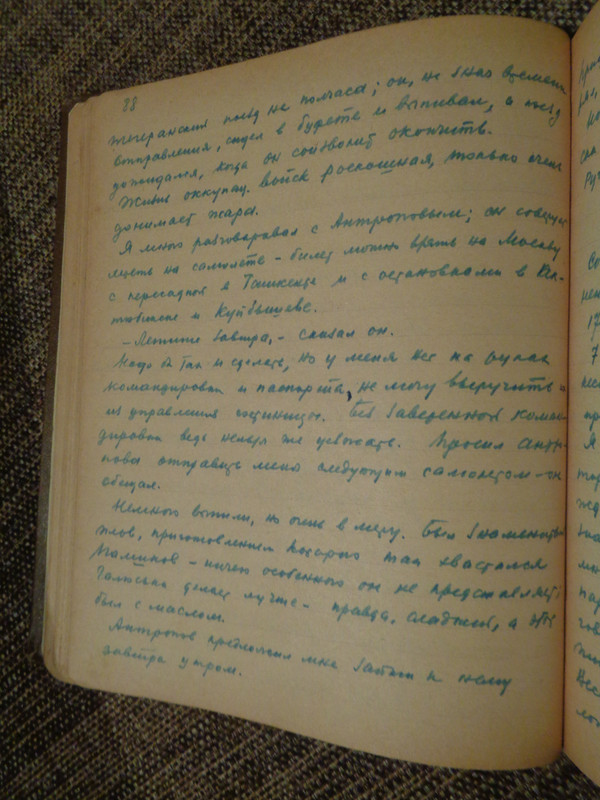 88
тегеранский поезд на полчаса; он, не зная времени
отправления, сидел в буфете и выпивал, а поезд
дожидался, когда он соизволит окончить.
Жизнь оккупац. войск роскошная, только очень
донимает жара.
Я много разговаривал с Антроповым; он советует
лететь на самолете - билет можно взять на Москву
с пересадкой в Ташкенте и с остановками в Ак-
тюбинске и Куйбышеве.
- Летите завтра, - сказал он.
Надо б так и сделать, но у меня нет на руках
командировки и паспорта, не могу выручить
из управления гостиницы. Без заверенной коман-
дировки ведь нельзя же уезжать. Просил Антро-
пова отправить меня следующим самолетом - он
обещал.
Немного выпили, но очень в меру. Был знаменитый
плов, приготовлением которого так хвастался
- ничего особенного он не представляет.
Галюська делает лучше - правда, сладкий, а этот
был с маслом.
Антропов предложил мне зайти к нему
завтра утром.